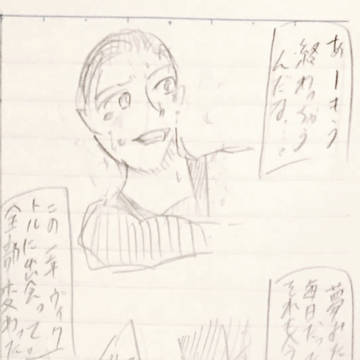 あーもう
終わっちゃう
んだな…
この一年ヴィク
トルに出会って。
全部変わった
夢みた
毎日だっ
それも